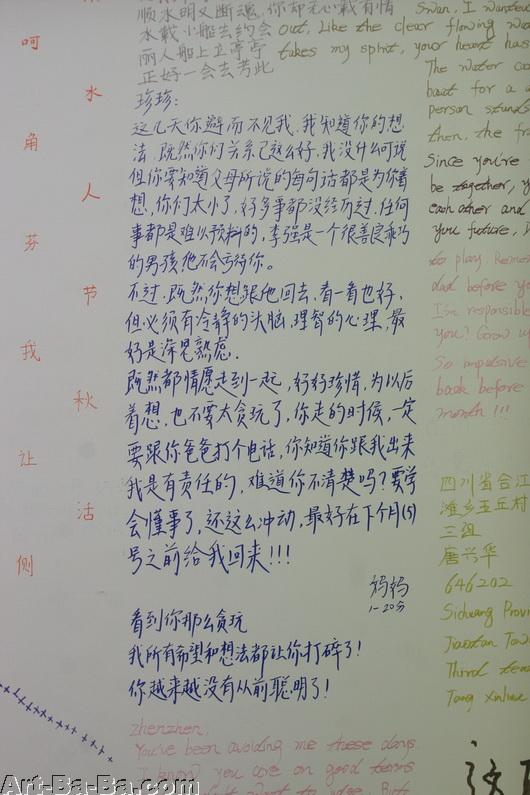 呵
角
芬
我
让
侧
水
人
节
秋
活
顺水明又断魂,你却无心载有情
水载小船去约会
丽人船上立亭亭
正好一会去芳此
out, Like the clear flowing wat
takes my spirit, your heart has
珍珍:
这几天你避而不见我,我知道你的想
法,既然你们关系已这么好,我没什么可说
但你要知道父母所说的每句话都是为你着
想,你们太小了,好多事都没经历过,任何
事都是难以预料的,李强是一个很善良乖巧
的男孩他不会亏待你。
不过,既然你想跟他回去,看一看也好,
但必须有冷静的头脑,理智的心理,最
好是深思熟虑.
既然都情愿走到一起,好好珍惜,为以后
着想,也不要太贪玩了,你走的时候,一定
要跟你爸爸打个电话,你知道你跟我出来
我是有责任的,难道你不清楚吗?要学
会懂事了,还这么冲动,最好在下个月(5)
号之前给我回来!!!
妈妈
1-20分
看到你那么贪玩
我所有希望和想法都让你打碎了!
你越来越没有从前聪明了!
zhenzhen,
You've been avoiding me these days
I know you are on good terms
Swan, I wanted
The water co
boat for a d
person stands
then, the fra
Since you're
be together, y
each other and
your future, D
to play. Remem
dad before yo
I'm responsible
you? Grow up
So impulsive
back before
month !!!
四川省合江
滩乡玉丘村
三组
唐兴华
646202
Sichuang Provi
Jiaotan Tow
Third tea
Tang Xinhua
这
Art-Ba-Ba.com